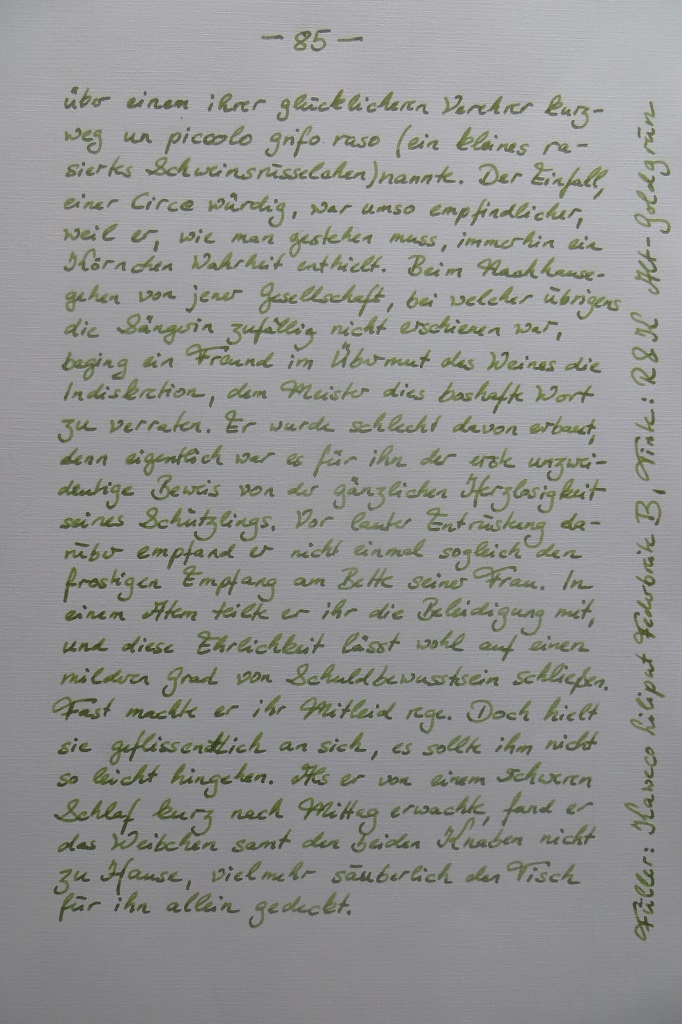 – 85 –
über einem ihrer glücklicheren Verehrer kurz-
weg un piccolo grifo raso (ein kleines ra-
siertes Schweinsrüsselchen) nannte. Der Einfall,
einer Circe würdig, war umso empfindlicher,
weil er, wie man gestehen muss, immerhin ein
Körnchen Wahrheit enthielt. Beim Nachhause-
gehen von jener Gesellschaft, bei welcher übrigens
die Sängerin zufällig nicht erschienen war,
beging ein Freund im Übermut des Weines die
Indiskretion, dem Meister dies boshafte Wort
zu verraten. Er wurde schlecht davon erbaut,
denn eigentlich war es für ihn der erste unzwei-
deutige Beweis von der gänzlichen Herzlosigkeit
seines Schützlings. Vor lauter Entrüstung da-
rüber empfand er nicht einmal sogleich den
frostigen Empfang am Bette seiner Frau. In
einem Atem teilte er ihr die Beleidigung mit,
und diese Ehrlichkeit lässt wohl auf einen
milderen Grad von Schuldbewusstsein schließen.
Fast machte er ihr Mitleid rege. Doch hielt
sie geflissentlich an sich, es sollte ihm nicht
so leicht hingehen. Als er von einem schweren
Schlaf kurz nach Mittag erwachte, fand er
das Weibchen samt den beiden Knaben nicht
zu Hause, vielmehr säuberlich den Tisch
für ihn allein gedeckt.
Füller: Kaweco Liliput Federbreite B, Tinte: R&K Alt-Goldgrün